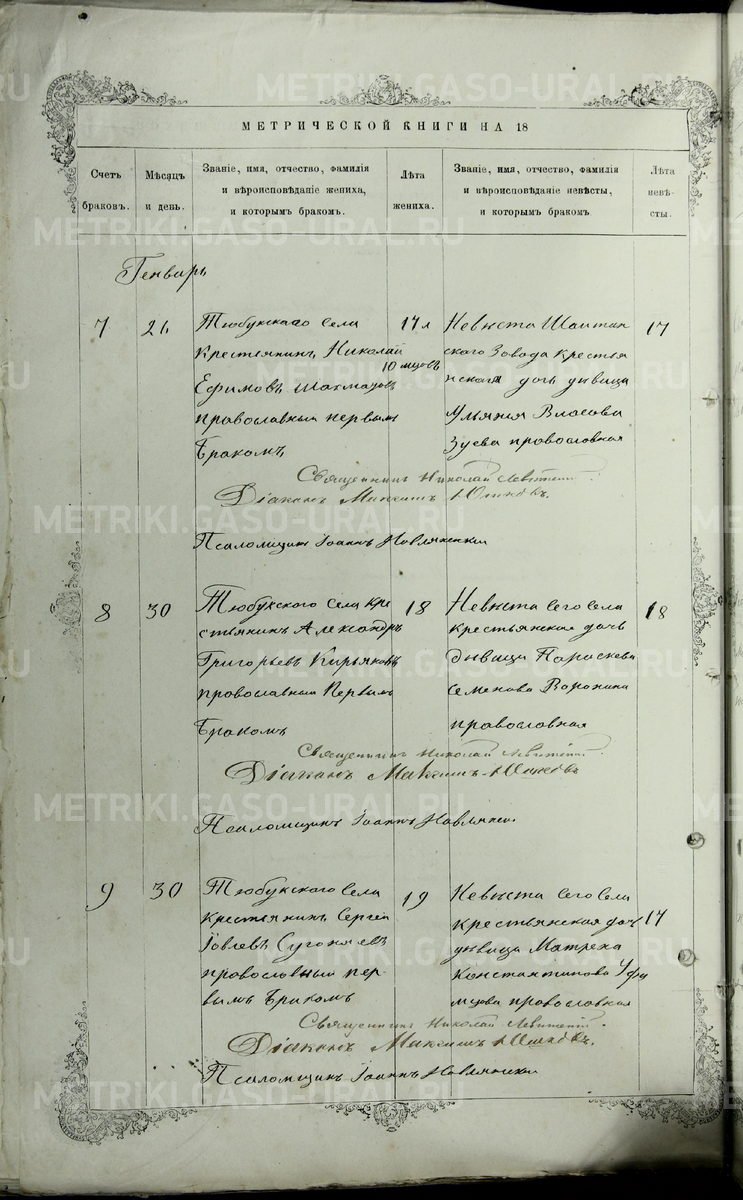 МЕТРИЧЕСКОЙ КНИГИ НА 18
Счетъ браковъ.
Мѣсяцъ и день.
Званіе, имя, отчество, фамилія и вѣроисповѣданіе жениха, и которымъ бракомъ.
Лѣта жениха.
Званіе, имя, отчество, фамилія и вѣроисповѣданіе невѣсты, и которымъ бракомъ
Лѣта невѣсты.
Генварь
7
26
Тюбукскаго села
Крестьянинъ Николай
Ефимовъ Шахмаловъ
православный первымъ
бракомъ
17 л
10 мцовъ
Невѣста Шайтан
скаго Завода крестья
нская дочь дѣвица
Ульянія Власова
Зуева православная
17
Священникъ Николай Левитскій.
Діаконъ Максимъ Юшковъ.
Псаломщикъ Іоаннъ Павлинскій
8
30
Тюбукского села кре
стьянинъ Александръ
Григорьевъ Кирьяковъ
православный Первымъ
Бракомъ
18
Невѣста сего села
крестьянская дочь
дѣвица Параскева
Семенова Воронина
православная
18
Священникъ Николай Левитскій.
Діаконъ Максимъ Юшковъ
Псаломщикъ Іоаннъ Павлинскій
9
30
Тюбукского Села
Крестьянинъ Сергей
Іовлевъ Сугоняевъ
православный пер
вымъ Бракомъ
19
Невѣста Сего Села
крестьянская дочь
дѣвица Матрена
Константинова Уфи
мцова православная
17
Священникъ Николай Левитскій.
Діаконъ Максимъ Юшковъ.
Псаломщикъ Іоаннъ Павлинскій
METRIKI.GASO-URAL.RU